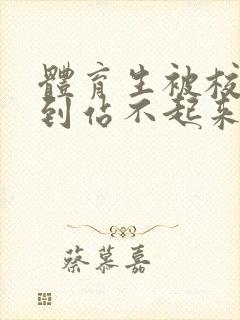 體育生被校
到佔不起來
蔡慕嘉